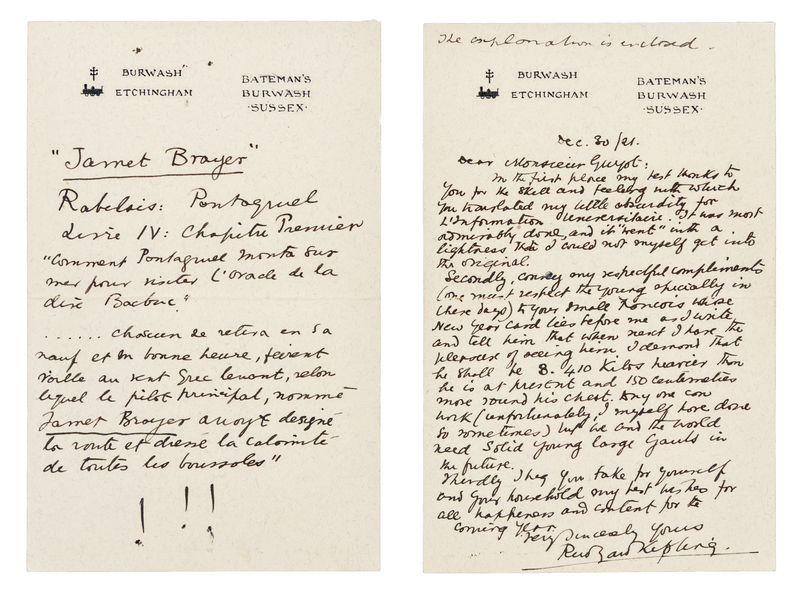 BURWASH
ETCHINGHAM
BATEMAN'S
BURWASH
·SUSSEX·
"Jamet Brayer"
Rabelais: Pantagruel
Livre IV: Chapitre Premier
"Comment Pantagruel monta sur
mer pour visiter L'Oracle de la
dive Bacbuc."
...... chacun se retira en sa
nauf et en bonne heure, feirent
voille au vent Grec levant, selon
lequel le pilot principal, nommé
Jamet Brayer avoyt designé
la route et dressé la calamité
de toutes les boussoles"
! !!
The explanation is enclosed.
BURWASH
ETCHINGHAM
BATEMAN'S
BURWASH
·SUSSEX·
Dec. 30/21.
Dear Monsieur Guyot:
In the first place my best thanks to
you for the skill and feeling with which
you translated my little absurdity for
L'Information Universitaire. It was most
admirably done, and it "went" with a
lightness that I could not myself get into
the original.
Secondly, convey my respectful compliments
(one must respect the young specially in
these days) to your small Francois whose
New Year card lies before me as I write
and tell him that when next I have the
pleasure of seeing him I demand that
he shall be 8.410 Kilos heavier than
he is at present and 150 centimetres
more round his chest. Any one can
work (unfortunately, I myself have done
so sometimes) but we and the world
need solid young large Gauls in
the future.
Thirdly I beg you take for yourself
and your household my best wishes for
all happiness and content for the
coming year.
Very sincerely yours
Rudyard Kipling.